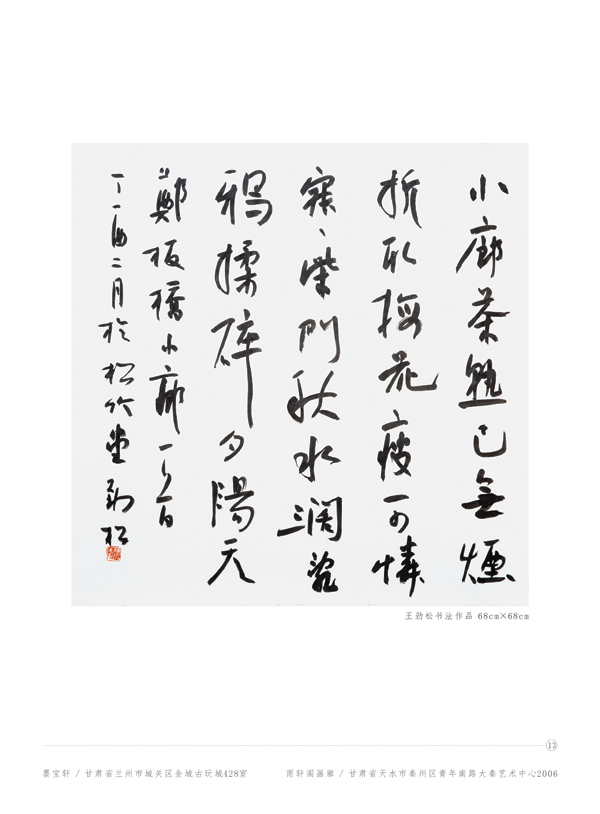 小廊茶熟已無煙
折取梅花瘦可憐
寂、柴門秋水闊亂
鴉揉碎夕陽天
鄭板橋小廊一首
丁酉二月於松竹堂勁松
王劲松书法作品 68cm×68cm
⑬
墨宝轩 / 甘肃省兰州市城关区金城古玩城428室
雨轩阁画廊 / 甘肃省天水市秦州区青年南路大秦艺术中心2006